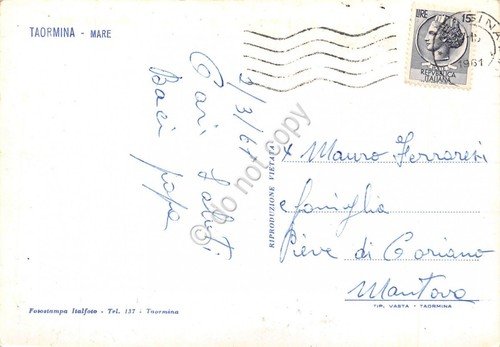 TAORMINA - MARE
9/3/61
Cari saluti
Baci papa
RIPRODUZIONE VIETATA
Mauro Ferraresi
e famiglia
Pieve di Coriano
Mantova
TIP. VASTA - TAORMINA
Fotostampa Italfoto - Tel. 137 - Taormina
LIRE 15
REPVBBLICA
ITALIANA
SINA
1961
© do not copy